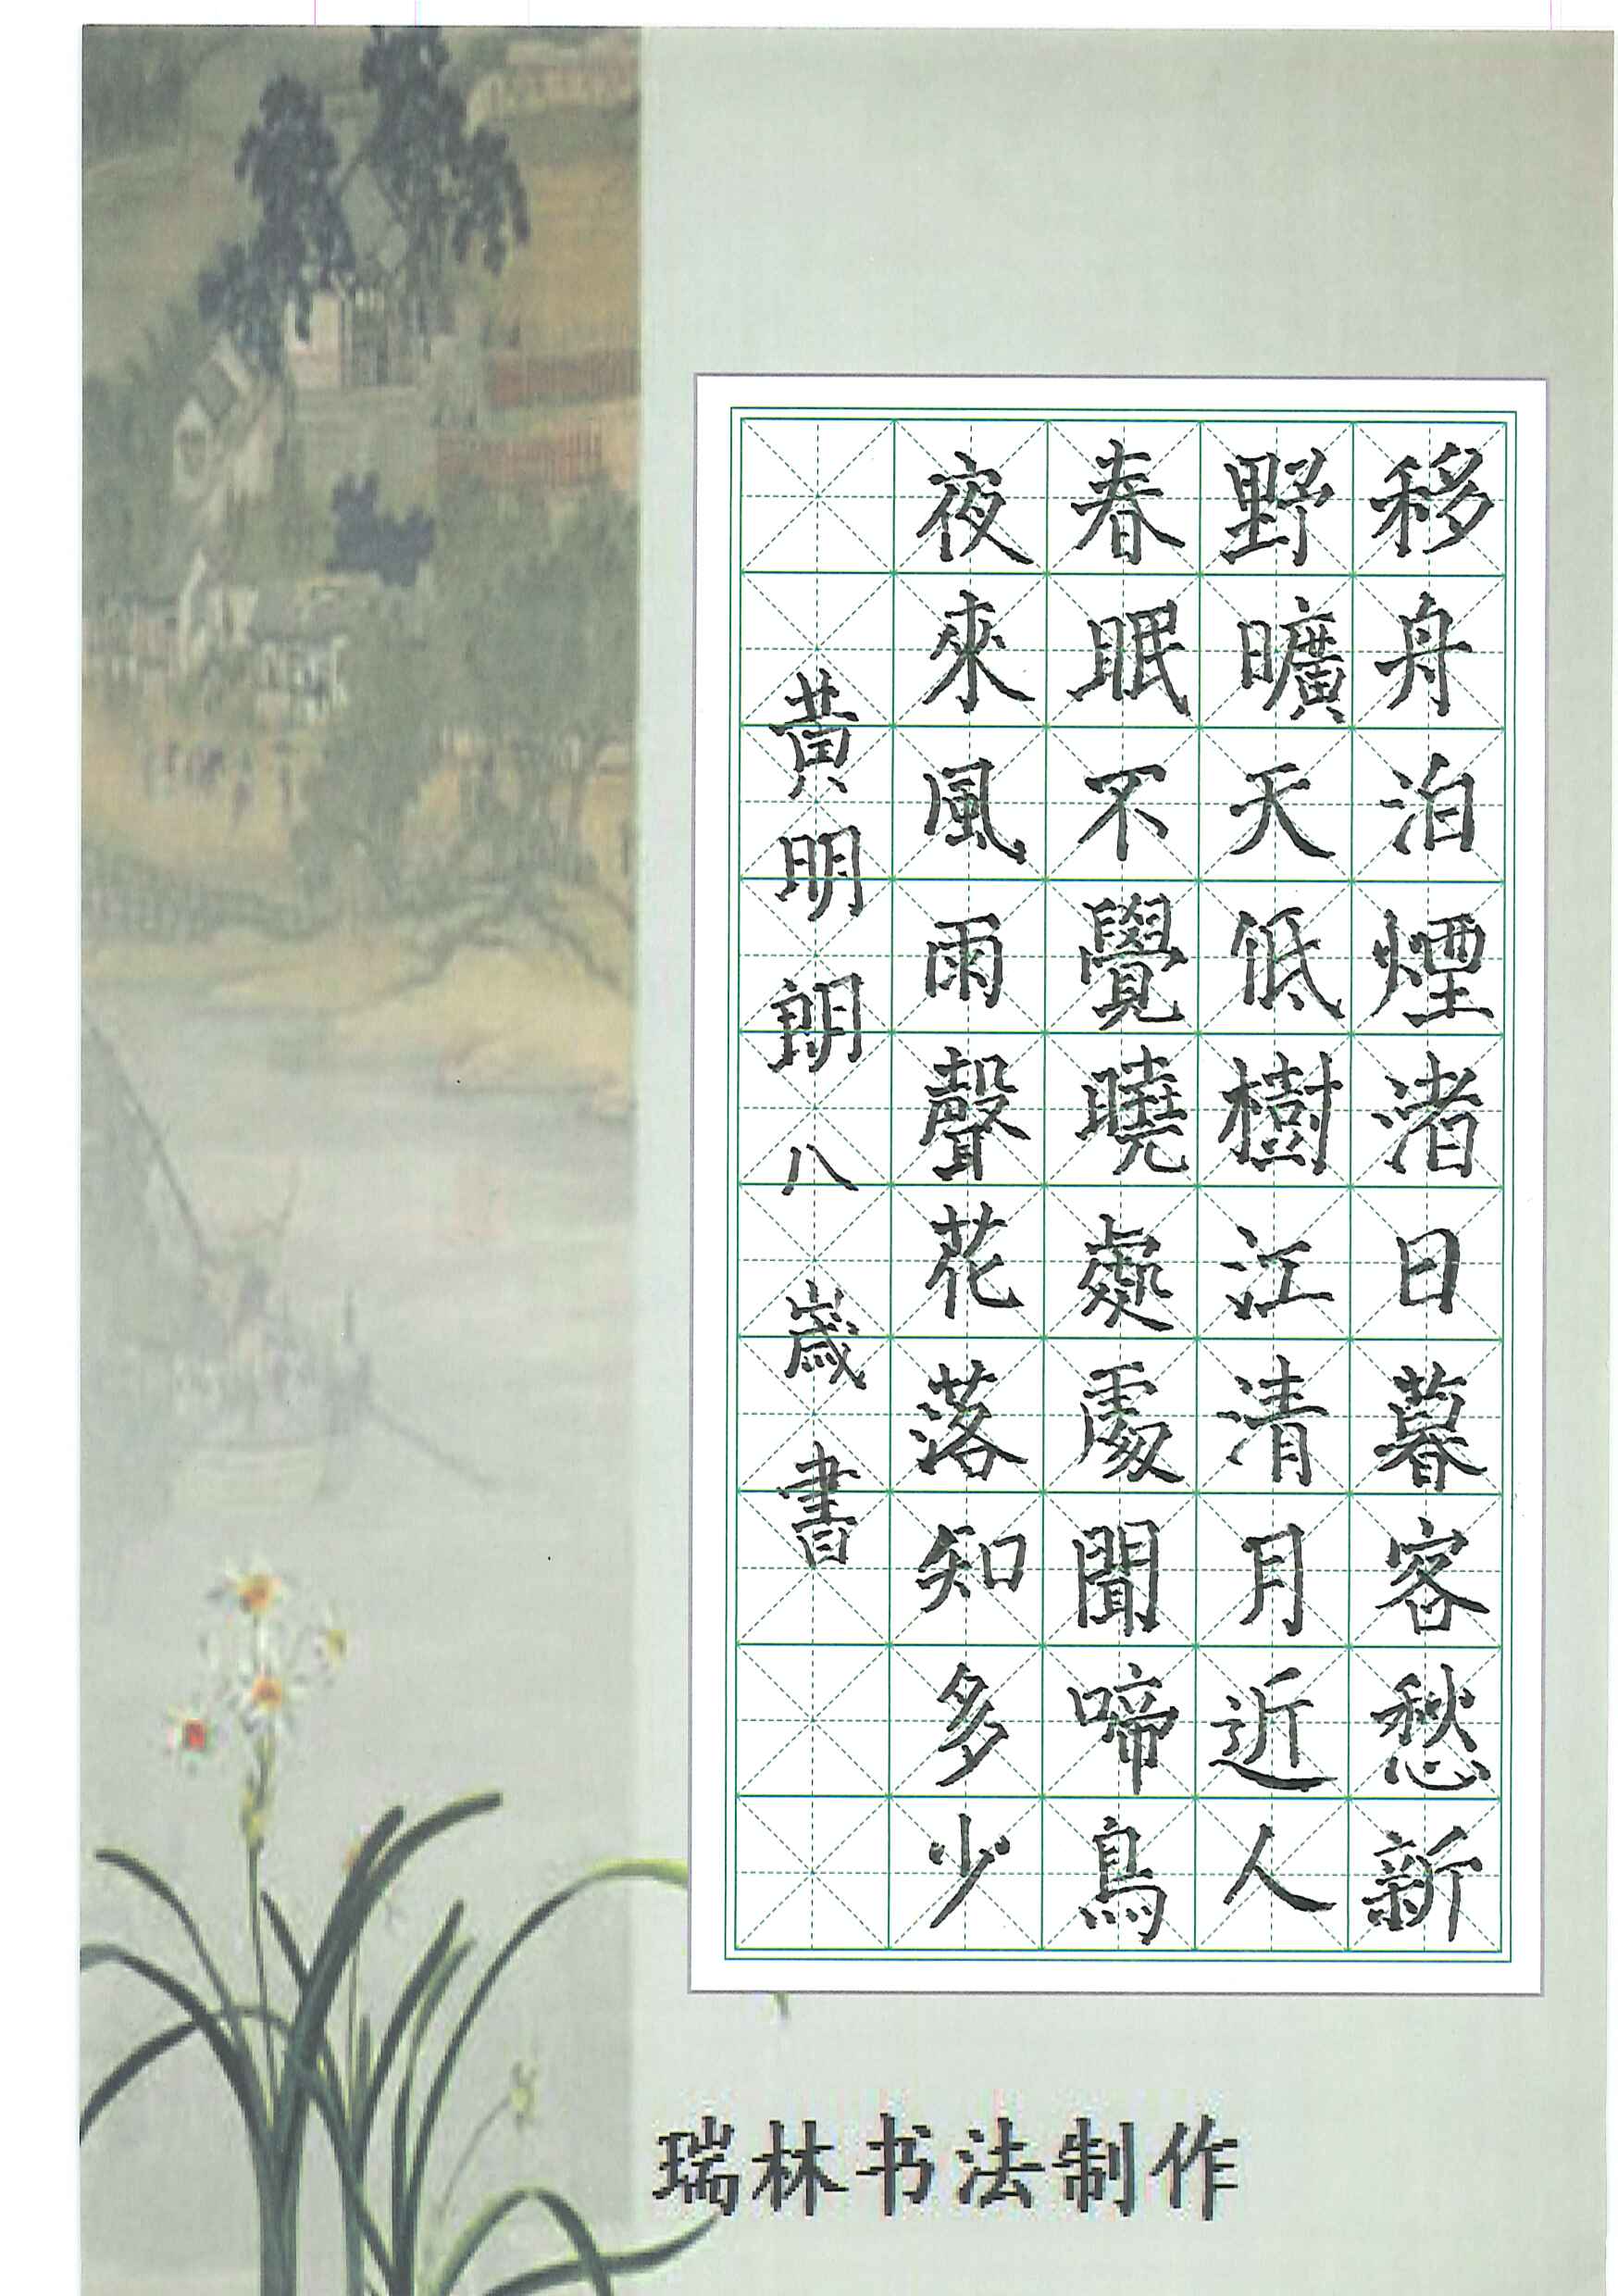 移舟泊煙渚日暮客愁新
野曠天低樹江清月近人
春眠不覺曉處處聞啼鳥
夜來風雨聲花落知多少
黃明朗八歲書
瑞林书法制作